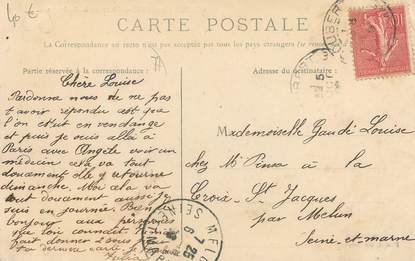 4 €
CARTE POSTALE
La Correspondance au recto n'est pas acceptée par tous les pays étrangers (se
Partie réservée à la correspondance :
Adresse du destinataire :
Chère Louise
Pardonne nous de ne pas
t avoir répondu est que
l'on était en vendange
et puis je suis allé à
Paris avec Angèle voir un
médecin cela va tout
doucment elle y retourne
dimanche. Moi cela va
tout doucement aussi je
suis en journée. Bien
bonjour aux personnes
que l'on connait
fait donner
Mademoiselle Gaudé Louise
chez Mr Pinsa à la
Croix-St Jacques
par Melun
Seine-et-marne
MELUN
6
7-25